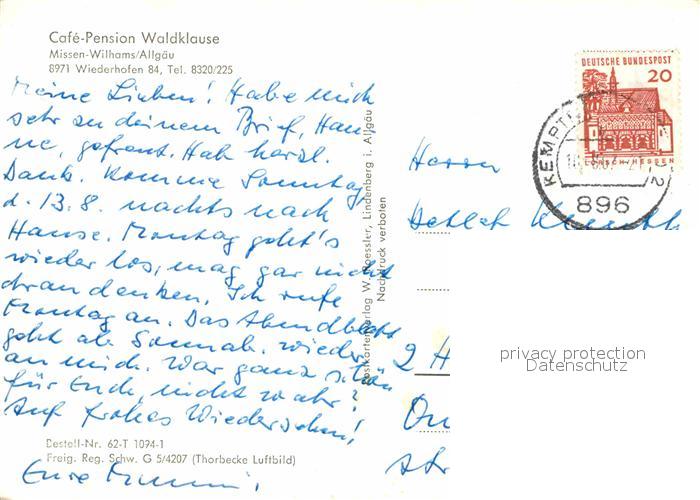 Café-Pension Waldklause
Missen-Wilhams/Allgäu
8971 Wiederhofen 84, Tel. 8320/225
Meine Lieben! Habe mich
sehr zu deinem Brief, Han-
ne, gefreut. Hab herzl.
Dank. Komme Sonntag
d. 13.8. nachts nach
Hause. Montag geht's
wieder los, mag gar nicht
dran denken. Ich rufe
Montag an. Das Abendblatt
geht ab Sonnab. wieder
an mich. War ganz schön
für Euch, nicht wahr?
Auf frohes Wiedersehen!
Eure
Bestell-Nr. 62-T 1094-1
Freig. Reg. Schw. G 5/4207 (Thorbecke Luftbild)
Postkartenverlag W. Roessler, Lindenberg i. Allgäu
Nachdruck verboten
DEUTSCHE BUNDESPOST
20
LORSCH-HESSEN
KEMPT
896
Herrn
Detlef
2 H
privacy protection
Datenschutz